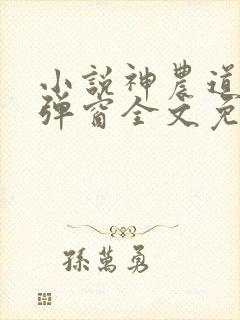 小説神農道
彈窗全文免
孫萬勇